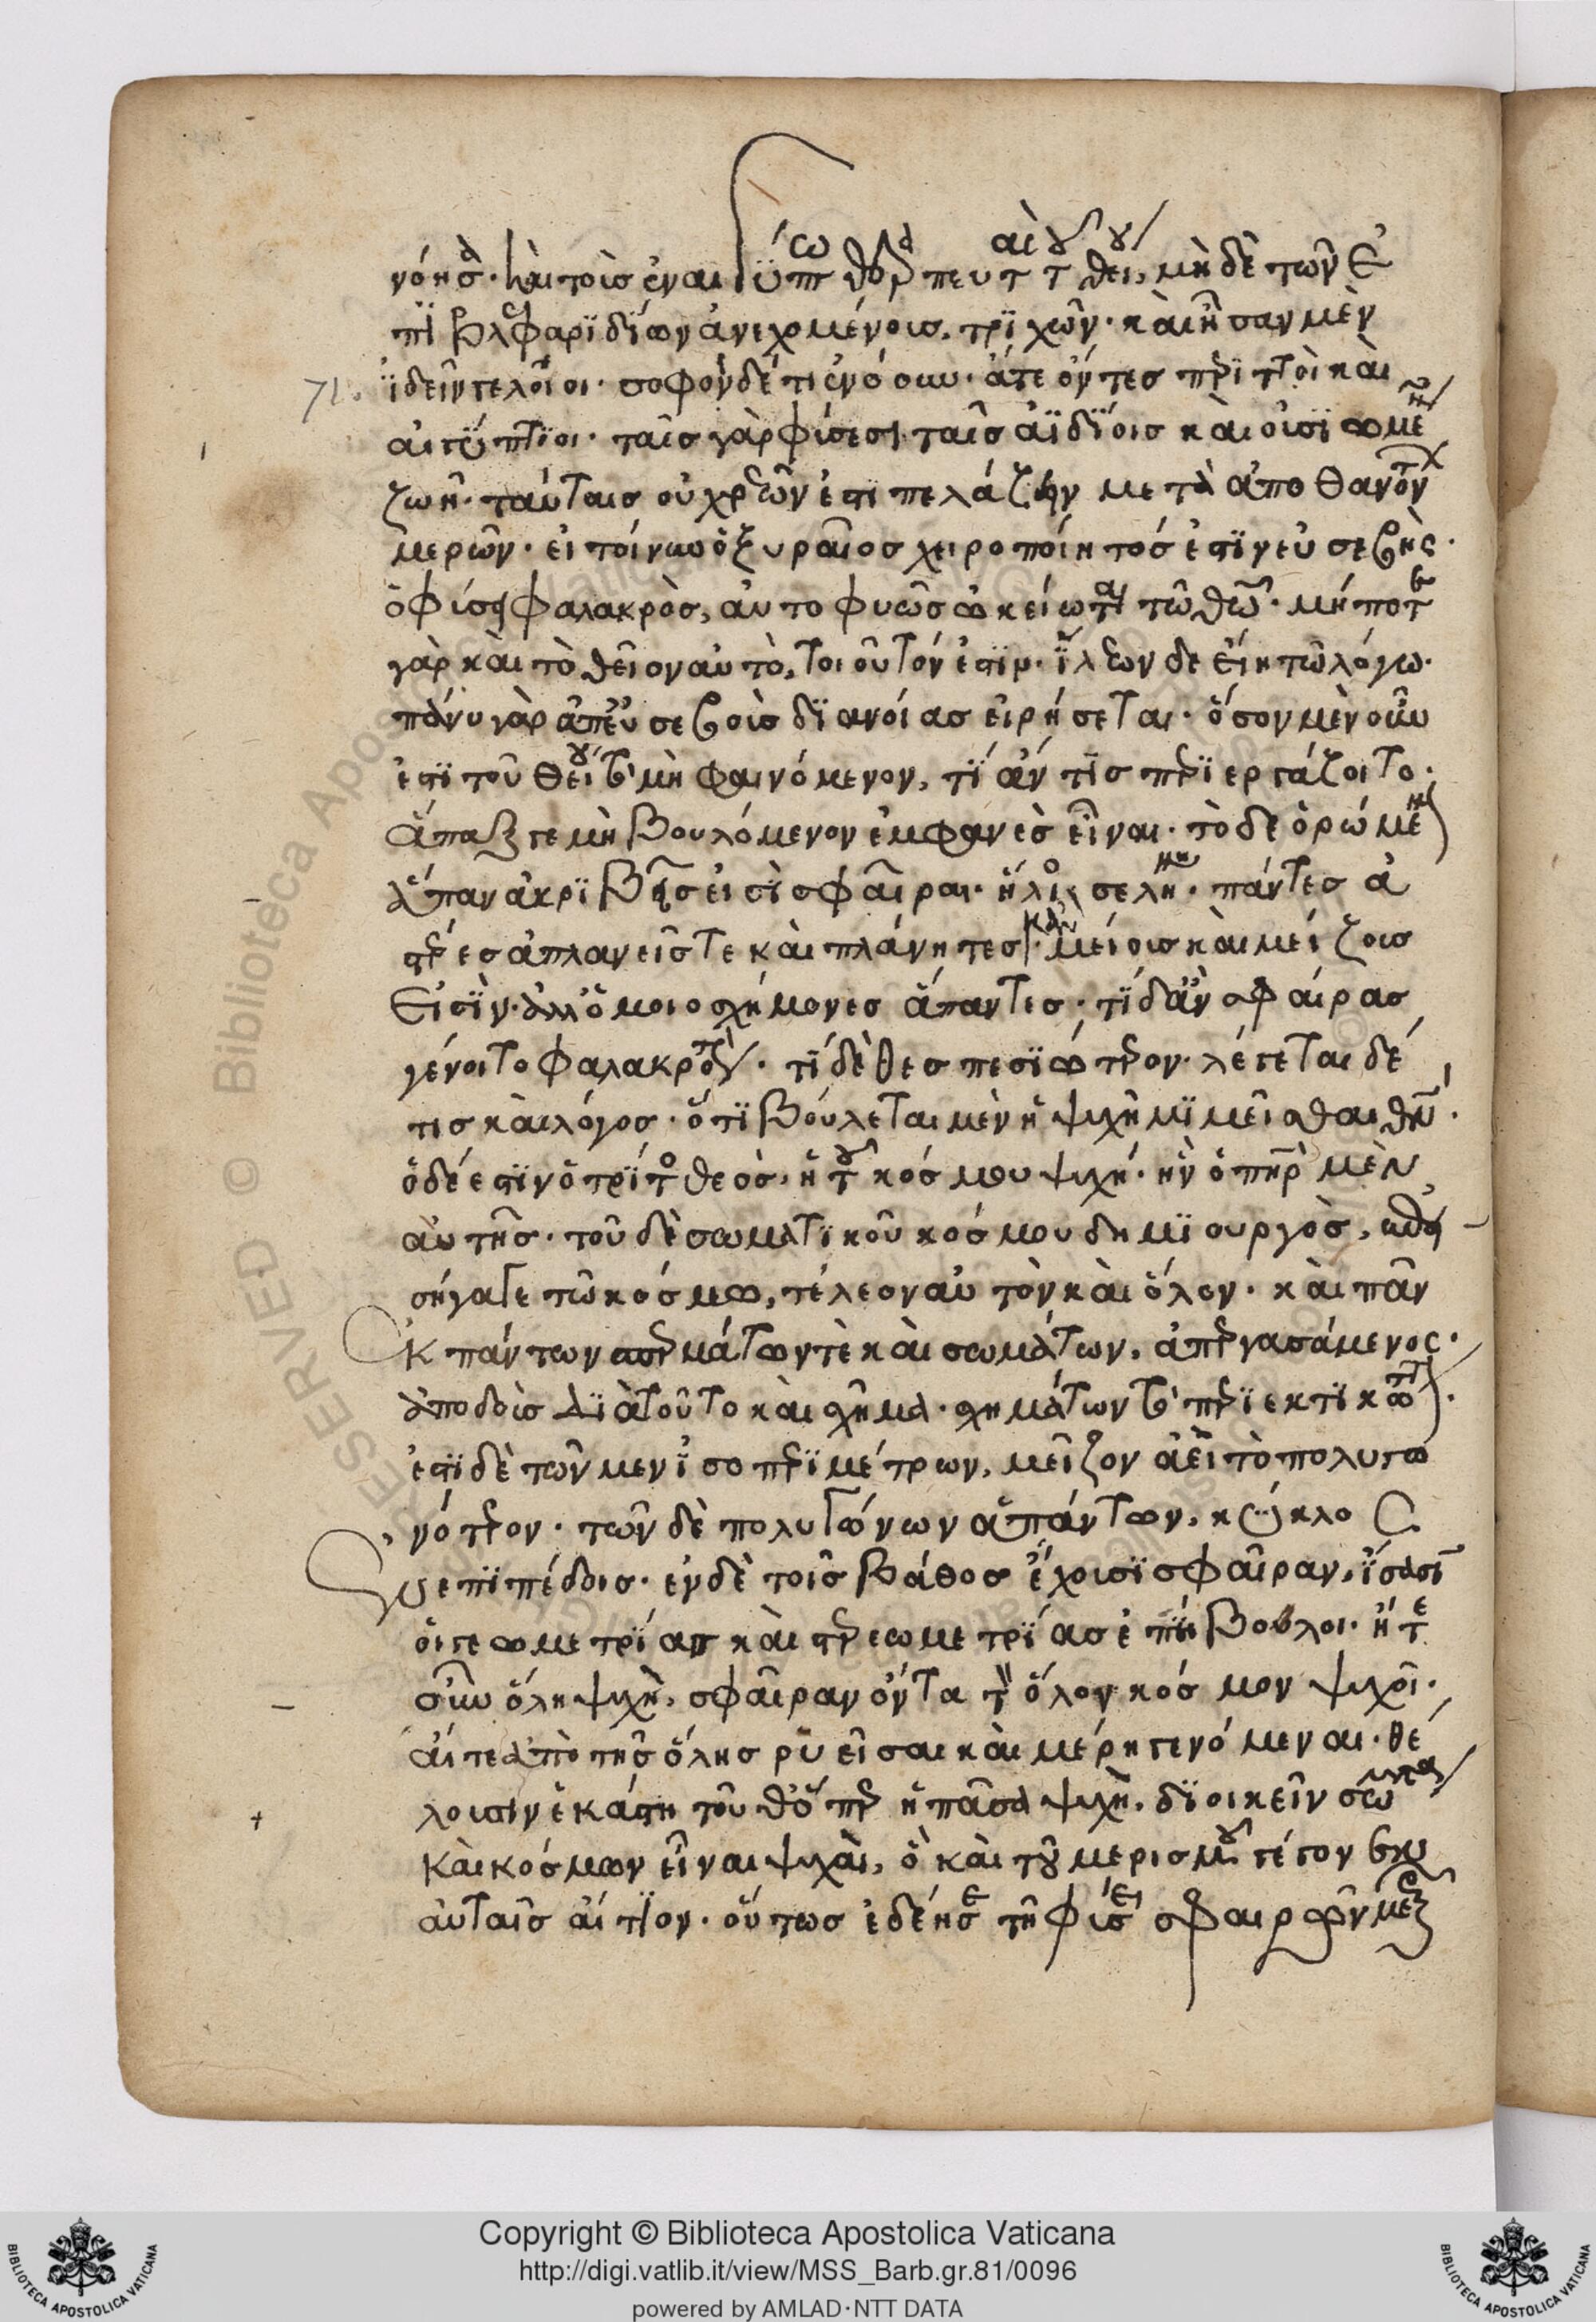 νόησα· καὶ τοῖς ἐναι ὕπω θεραπευταὶ τοῦ θείου, μὴ δὲ τῶν ἐ
πι βλεφαρϊδΐων ἀνεχομένοις, τριχῶν· καὶ ἦσαν μὲν
ϊδεῖν γελοῖοι· σοφὸν δέ τι ἐνόουν· ἅτε ὄντες περιττοὶ καὶ
αἰγύπτϊοι· ταῖς γὰρ φύσεσι ταῖς ἀϊδΐοις καὶ οὐσιωμέναις
ζωῆ· ταύταις οὐ χρεῶν ἐπιπελάζειν μετὰ ἀποθανόντων
μερῶν· εἰ τοίνυν ὁ ξυρώμενος χειροποίητός ἐστιν εὐσεβής·
ὁ φύσει φαλακρὸς, αὐτοφυῶς ὠκείωται τῶ θεῶ· μήποτε
γὰρ καὶ τὸ θεῖον αὐτὸ, τοιοῦτόν ἐστϊν· ἵλεων δὲ εἴη τῶ λόγω·
πάνυ γὰρ ἀπ' εὐσεβοῦς διανοίας εἰρήσεται· ὅσον μὲν οὖν
ἐστὶ τοῦ θείου τὸ μὴ φαινόμενον, τί ἄν τις περϊεργάζοιτο·
ἅπαξ γε μὴ βουλόμενον ἐμφανὲς εἶναι· τὸ δὲ ὁρώμενον
ἅπαν ἀκριβῶς εἰσὶ σφαῖραι· ἥλιος σελήνη· πάντες ἀ
στέρες ἀπλανεῖς τε καὶ πλάνητες· κἂν μείους καὶ μείζους
εἰσὶν· ἀλλ' ὁμοιοσχήμονες ἅπαντες· τί δ' ἂν σφαίρας
γένοιτο φαλακρότερον· τί δὲ θεσπεσιώτερον· λέγεται δέ
τις καὶ λόγος· ὅτι βούλεται μὲν ἡ ψυχὴ μιμεῖσθαι θεὸν·
ὁ δέ ἐστιν ὁ τρίτος θεὸς, ἡ τοῦ κόσμου ψυχή· ἣν ὁ πατὴρ μὲν
αὐτῆς· τοῦ δὲ σωματικοῦ κόσμου δημιουργὸς,
σήγαγε τῶ κόσμω, τέλεον αὐτὸν καὶ ὅλον· καὶ πᾶν
ἐκ πάντων σπερμάτων τὲ καὶ σωμάτων, ἀπεργασάμενος·
ἀποδοὺς διὰ τοῦτο καὶ σχῆμα· σχημάτων τὸ περιεκτικώτατον·
ἐστὶ δὲ τῶν μεν ἰσοπεριμέτρων, μεῖζον ἀεὶ τὸ πολυγω
νότερον· τῶν δὲ πολυγώνων ἁπάντων, κύκλος
ἐν ἐπιπέδοις· ἐν δὲ τοῖς βάθος ἔχουσι σφαῖραν, ἴσασι
οἱ γεωμετρίας καὶ στερεωμετρίας ἐπήβολοι· ἥ τε
οὖν ὅλη ψυχὴ, σφαῖραν ὄντα τὸν ὅλον κόσμον ψυχοῖ·
αἵ τε ἀπὸ τῆς ὅλης ρυεῖσαι καὶ μέρη γενόμεναι· θέ
λουσιν ἑκάστη τοῦθ' ὅπερ ἡ πᾶσα ψυχὴ, διοικεῖν σώματα
καὶ κόσμων εἶναι ψυχαὶ, ὃ καὶ τοῦ μερισμοῦ γέγονεν
αὐταῖς αἴτϊον· οὕτως ἐδέησε τῆ φύσει σφαιρῶν
71.
Copyright © Biblioteca Apostolica Vaticana
http://digi.vatlib.it/view/MSS_Barb.gr.81/0096
powered by AMLAD·NTT DATA